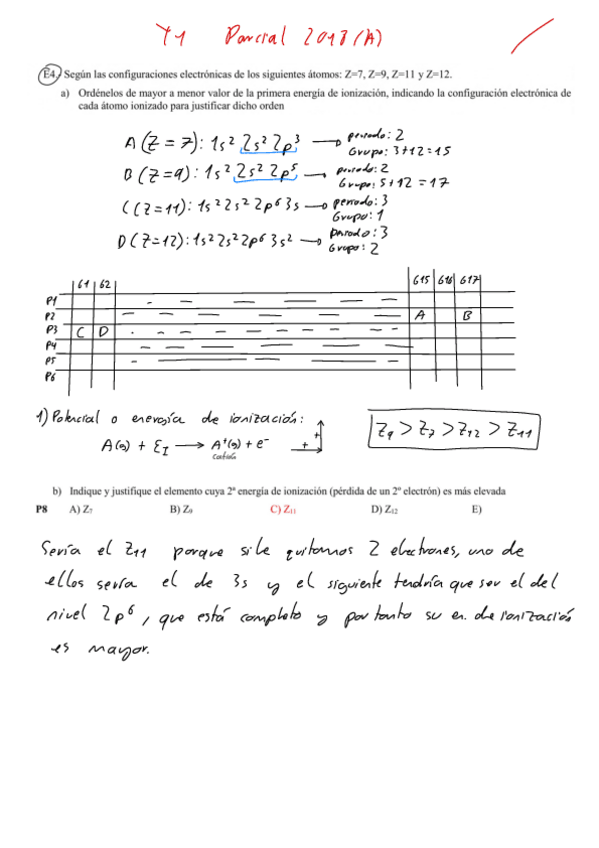 T1 Parcial 2018 (A)
E4. Según las configuraciones electrónicas de los siguientes átomos: Z=7, Z=9, Z=11 y Z=12.
a) Ordénelos de mayor a menor valor de la primera energía de ionización, indicando la configuración electrónica de
cada átomo ionizado para justificar dicho orden
A (Z = 7): 1s² 2s² 2p³ → periodo: 2
Grupo: 3+12=15
B (Z=9): 1s² 2s² 2p⁵ → periodo: 2
Grupo: 5+12=17
C (Z=11): 1s² 2s² 2p⁶ 3s → periodo: 3
Grupo: 1
D (Z=12): 1s² 2s² 2p⁶ 3s² → periodo: 3
Grupo: 2
G1 G2 G15 G16 G17
P1
P2 A B
P3 C D
P4
P5
P6
1) Potencial o energía de ionización:
A(g) + EI → A⁺(g) + e⁻
catión
+ +
Z9 > Z7 > Z12 > Z11
b) Indique y justifique el elemento cuya 2ª energía de ionización (pérdida de un 2º electrón) es más elevada
P8 A) Z₇ B) Z₉ C) Z₁₁ D) Z₁₂ E)
Sería el Z11 porque si le quitamos 2 electrones, uno de
ellos sería el de 3s y el siguiente tendría que ser el del
nivel 2p⁶, que está completo y por tanto su en. de ionización
es mayor.